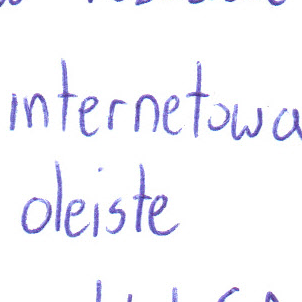 internetowa
oleiste